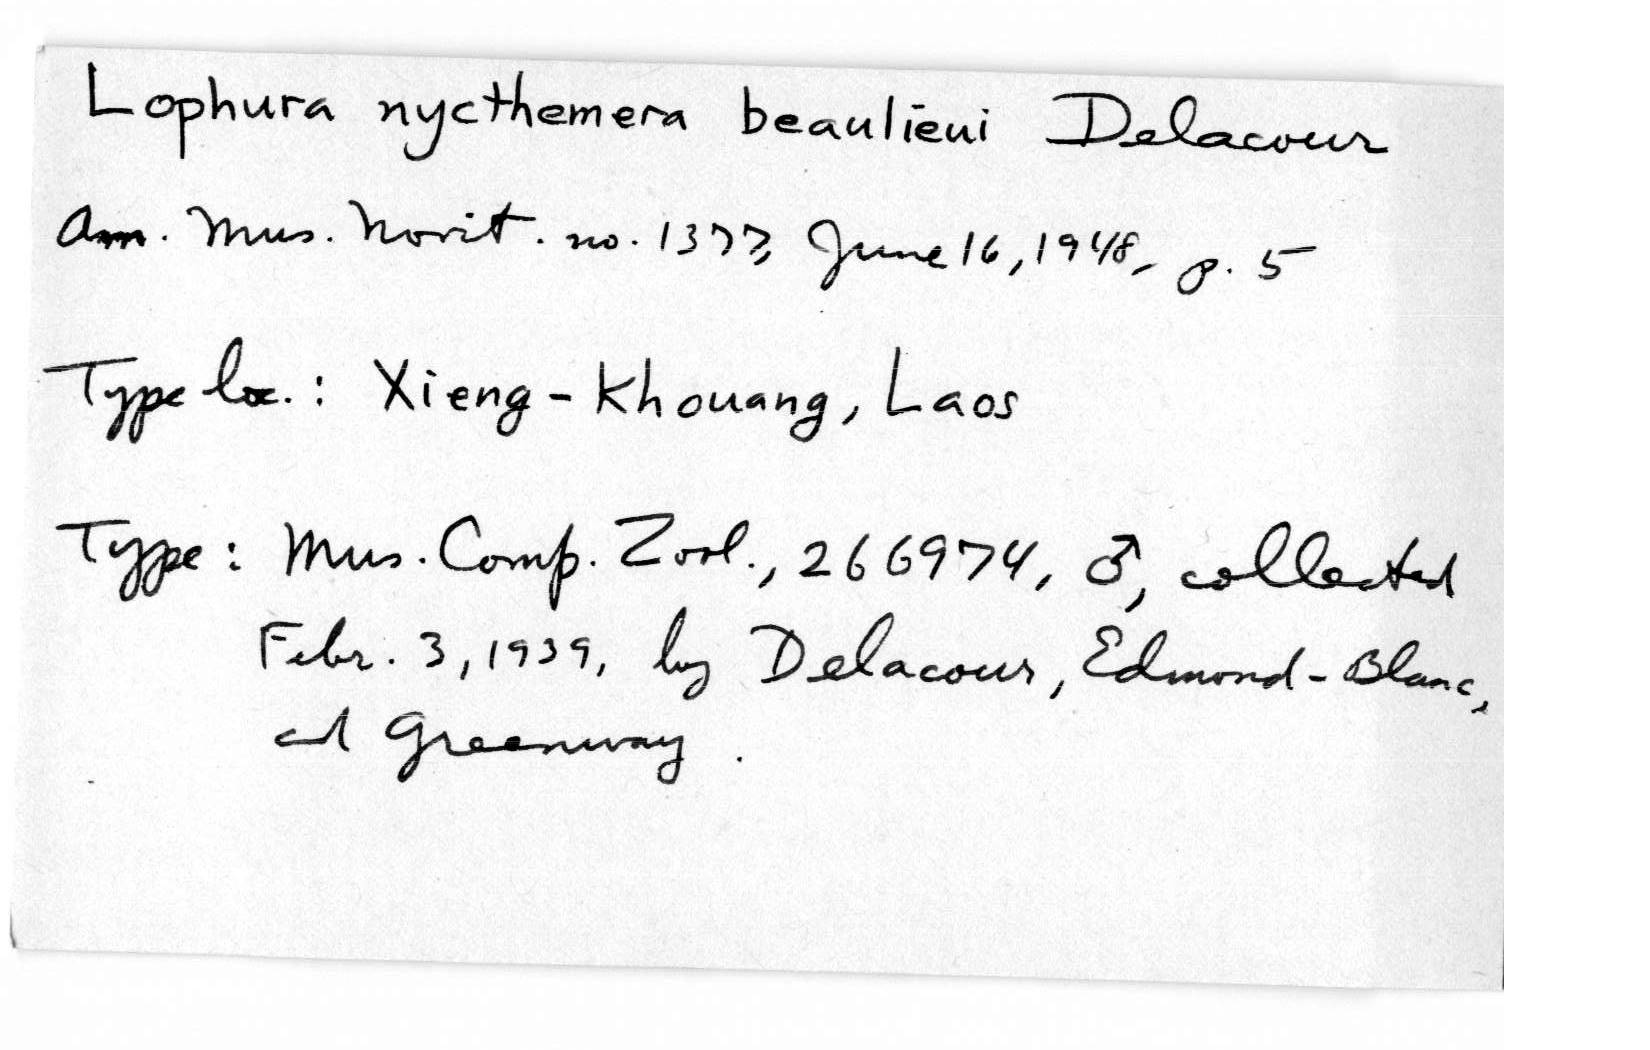 Lophura nycthemera beaulieui Delacour
Am. Mus. Novit. no. 1377, June 16, 1948, p. 5
Type loc.: Xieng-Khouang, Laos
Type: Mus. Comp. Zool., 266974, ♂, collected
Febr. 3, 1939, by Delacour, Edmond-Blanc,
and Greenway.